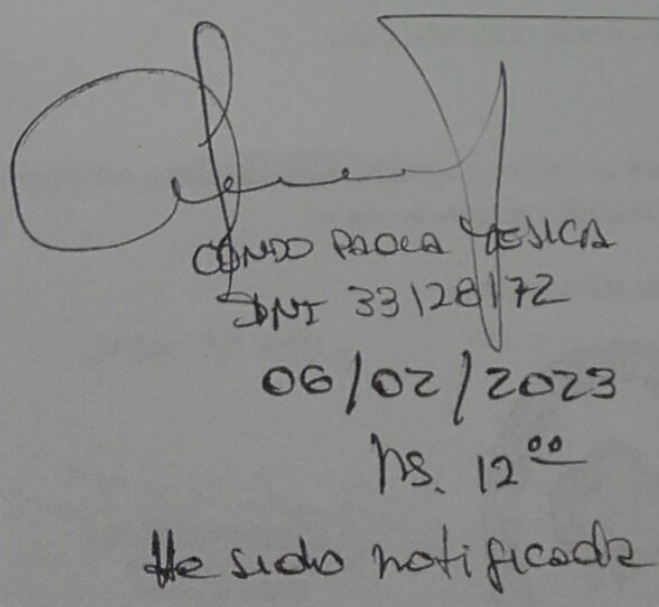 CONDO PAOLA YESICA
DNI 33128172
06/02/2023
hs. 12 00
He sido notificada